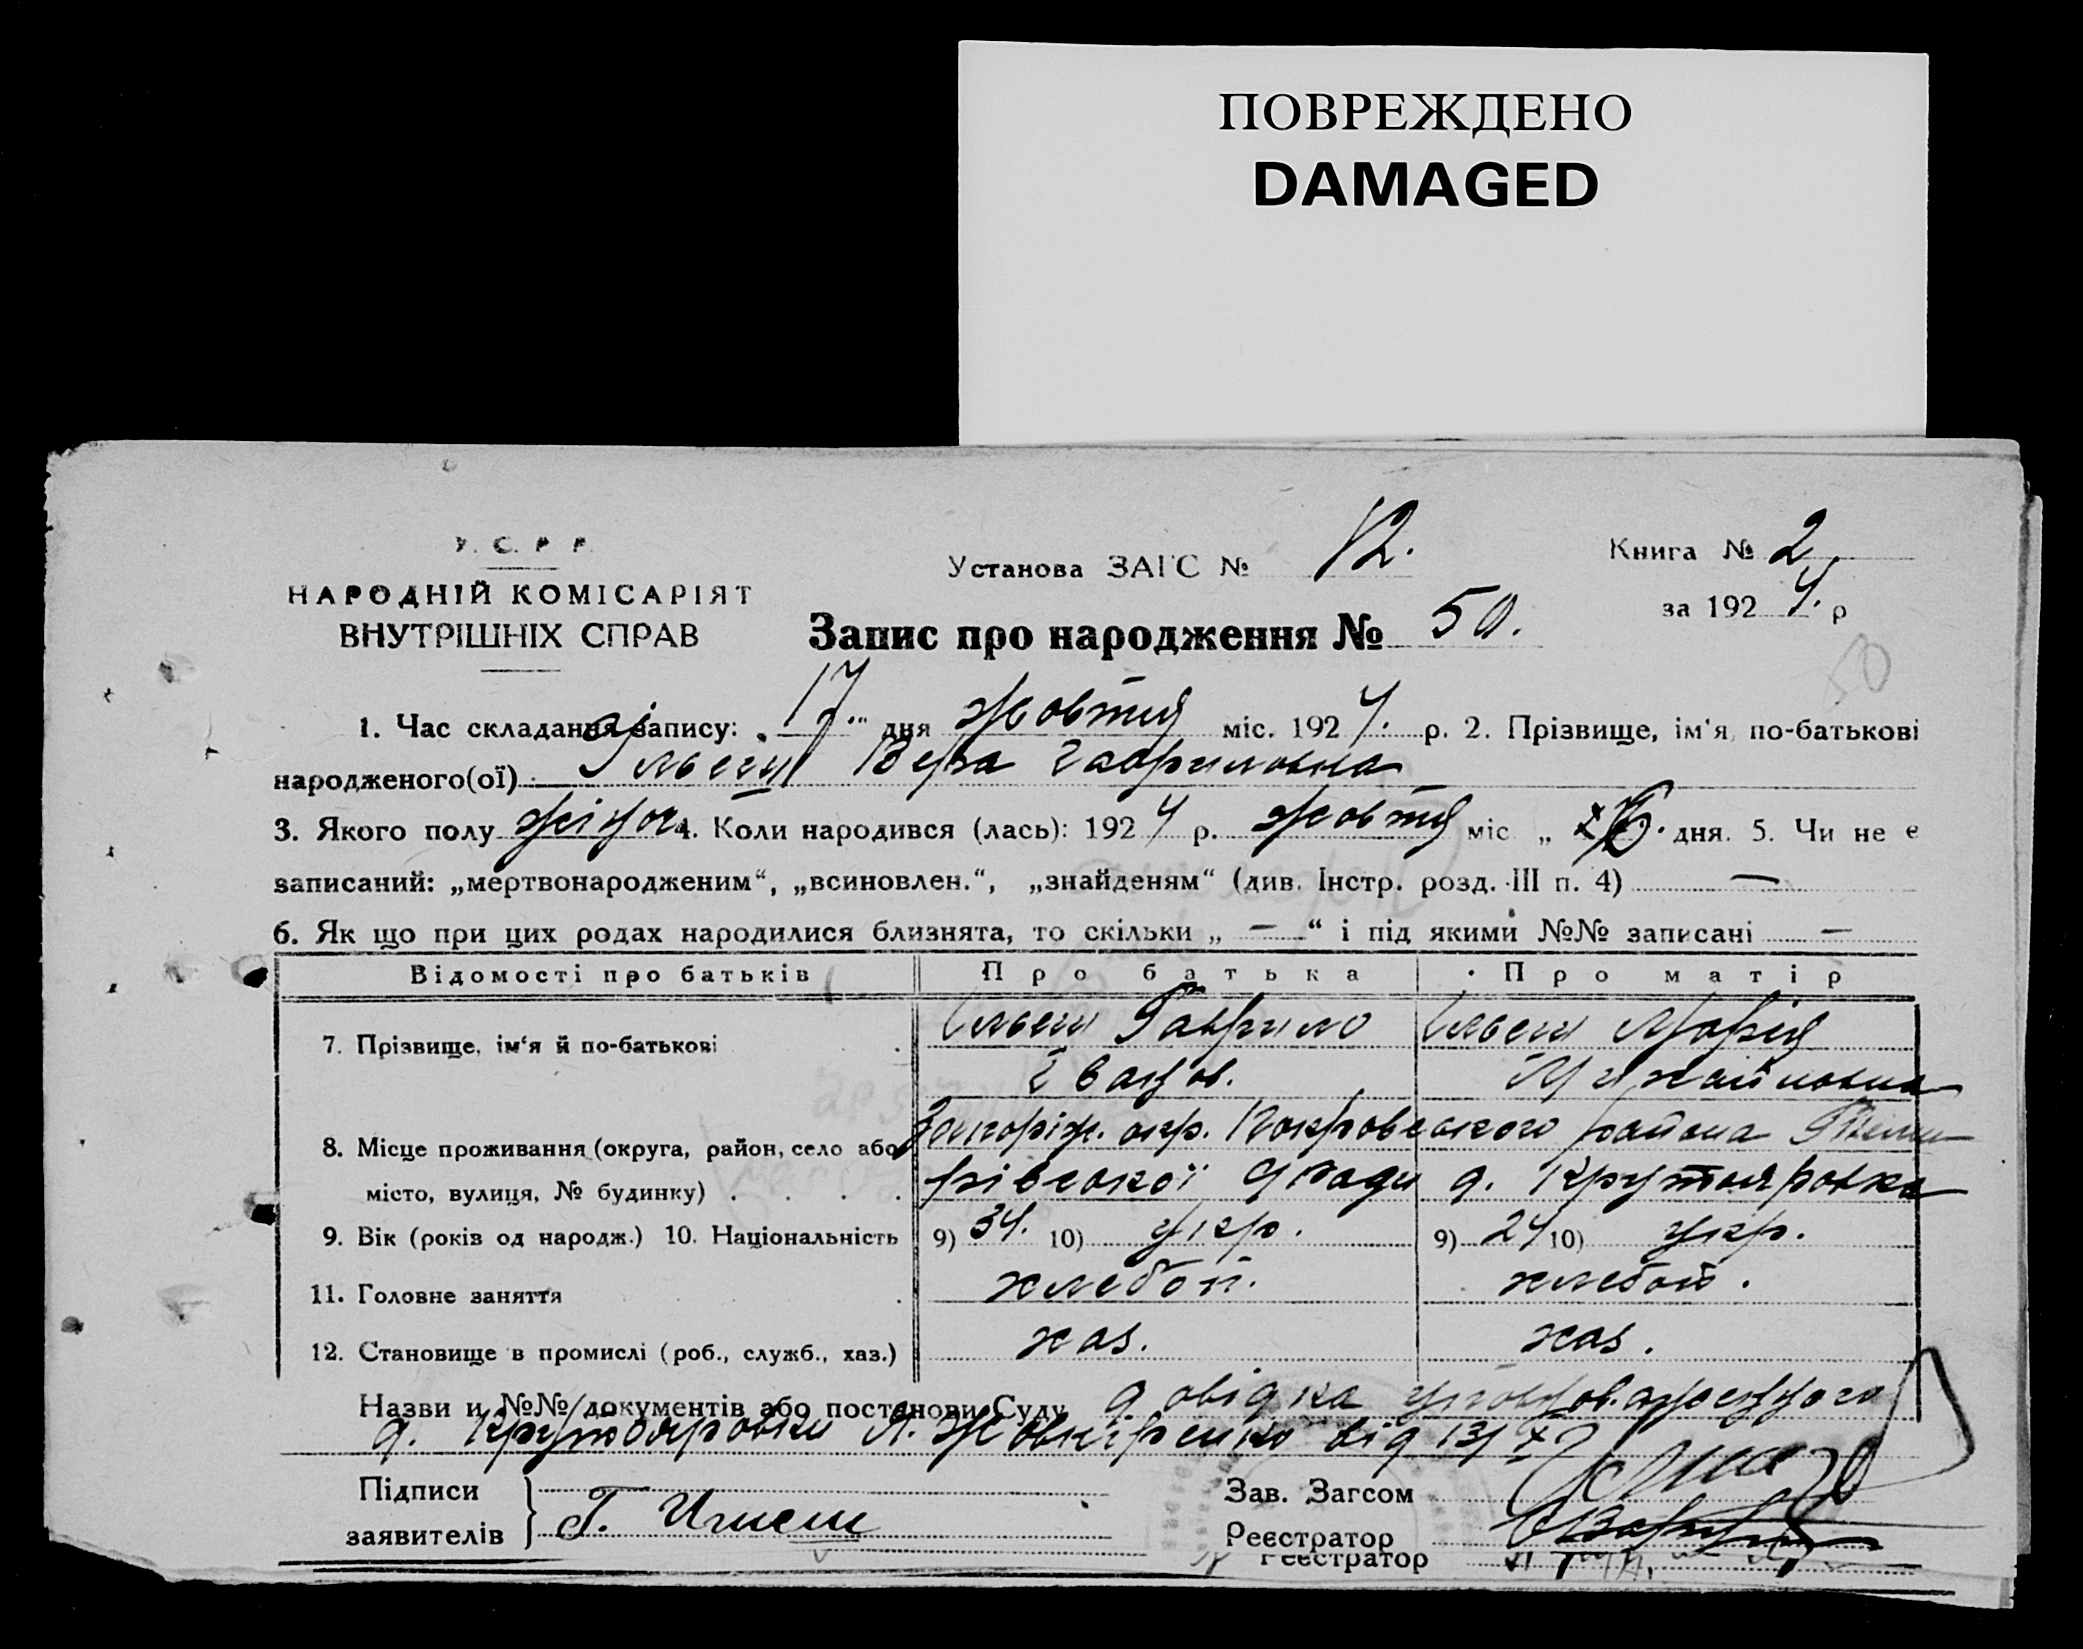 ПОВРЕЖДЕНО
DAMAGED
У. С. Р. Р.
НАРОДНІЙ КОМІСАРІЯТ
ВНУТРІШНІХ СПРАВ
Установа ЗАГС № 12.
Книга № 2
за 1924. р
Запис про народження № 50.
50
1. Час складання запису: „17“ дня жовтня міс. 1924. р. 2. Прізвище, ім'я, по-батькові
народженого(ої) Вера Гавриловна
3. Якого полу жіноч. 4. Коли народився (лась): 1924 р. жовтня міс „ 6. дня. 5. Чи не є
записаний: „мертвонародженим“, „всиновлен.“, „знайденям“ (див. Інстр. розд. ІІІ п. 4) —
6. Як що при цих родах народилися близнята, то скільки „ — “ і під якими №№ записані —
Відомості про батьків Про батька Про матір
7. Прізвище, ім'я й по-батькові Гаврило Марія
Іванов. Михайловна
8. Місце проживання (округа, район, село або Запоріж. окр. Покровського района
місто, вулиця, № будинку) рівської Ради д. Крутояровка
9. Вік (років од народж.) 10. Національність 9) 34. 10) укр. 9) 24 10) укр.
11. Головне заняття хлебоп. хлебоп.
12. Становище в промислі (роб., служб., хаз.) хаз. хаз.
Назви и №№ документів або постанови Суду довідка уповнов.
д. Крутояровки від 13/X
Підписи
заявителів Г.
Зав. Загсом
Реєстратор
Реєстратор